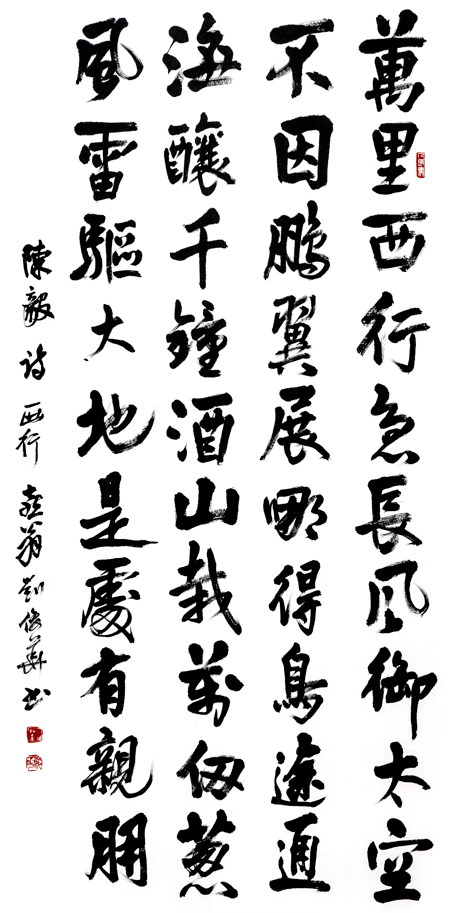 萬里西行急長风御太空
不因鵬翼展哪得鳥途通
海釀千鐘酒山栽萬仞蔥
風雷驅大地是處有親朋
陳毅诗西行翁劉俊華书